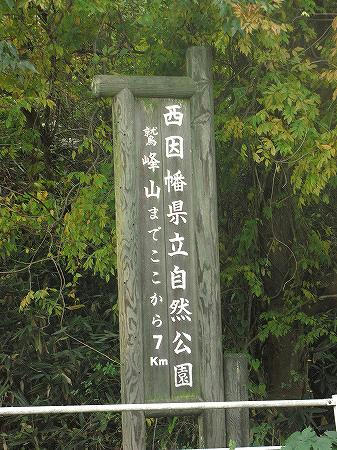 西因幡県立自然公園
鷲峰山までここから7Km